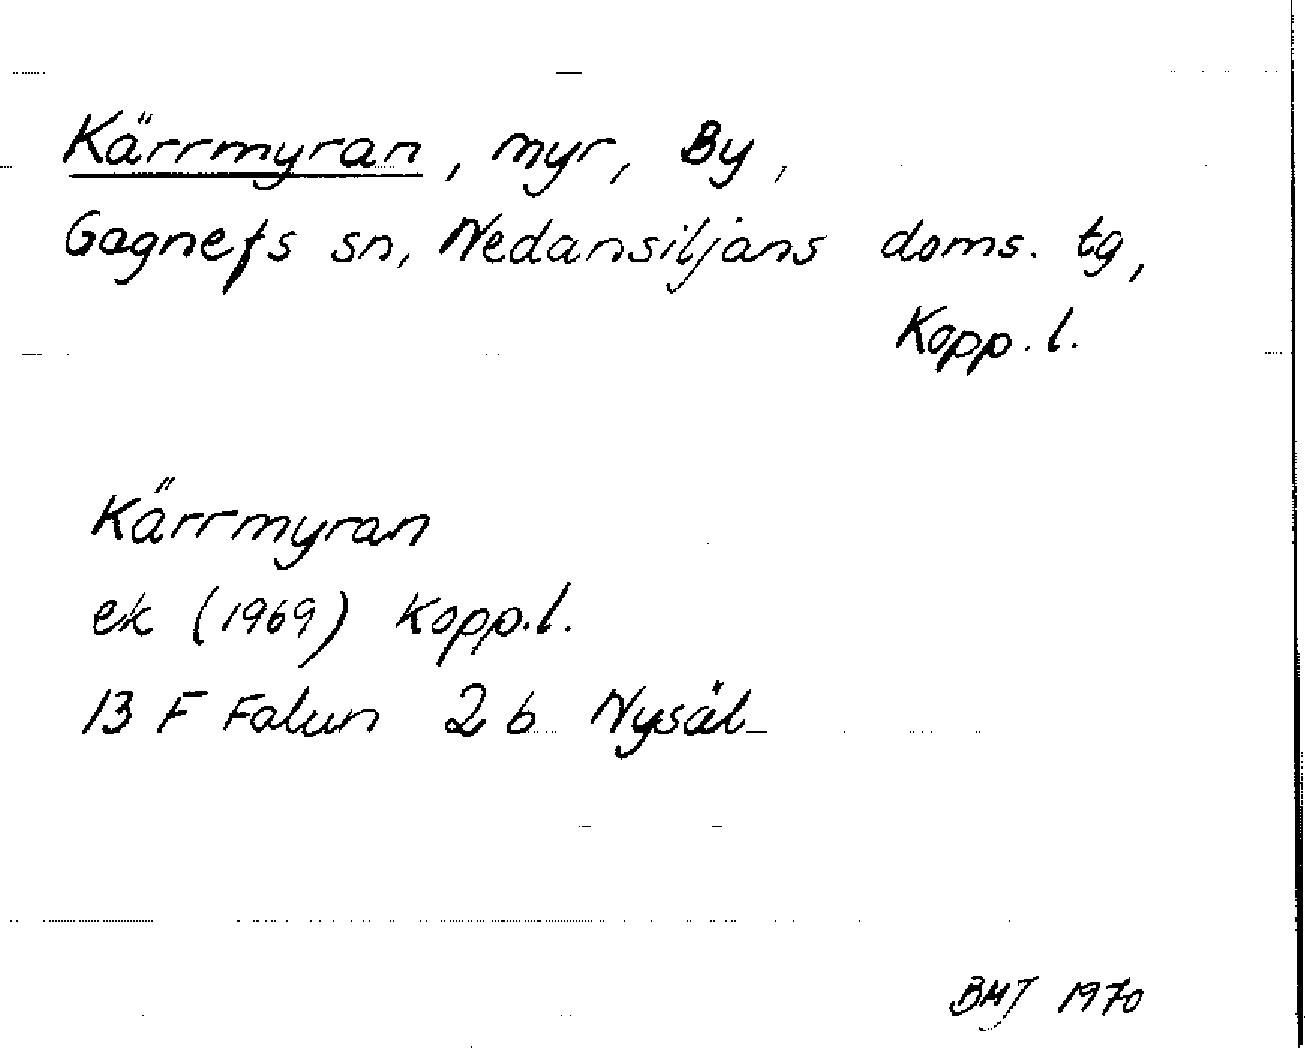 Kärrmyran, myr, By,
Gagnefs sn, Nedansiljans doms. tg,
Kopp. l.
Kärrmyran
ek (1969) Kopp.l.
13 F Falun 2 b Nysäl
BMJ 1970